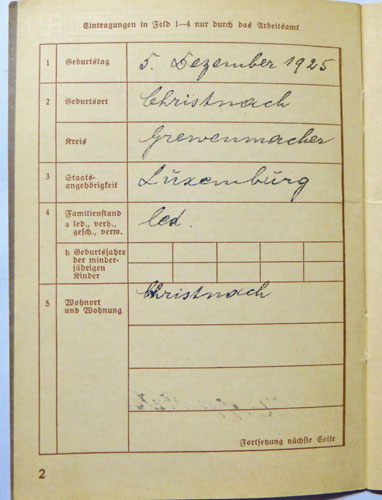 Eintragungen in Feld 1—4 nur durch das Arbeitsamt
1 Geburtstag 5. Dezember 1925
2 Geburtsort Christnach
Kreis Grewenmacher
3 Staats-
angehörigkeit Luxemburg
4 Familienstand
a led., verh.,
gesch., verw. led.
b Geburtsjahre
der minder-
jährigen
Kinder
5 Wohnort
und Wohnung Christnach
Fortsetzung nächste Seite
2